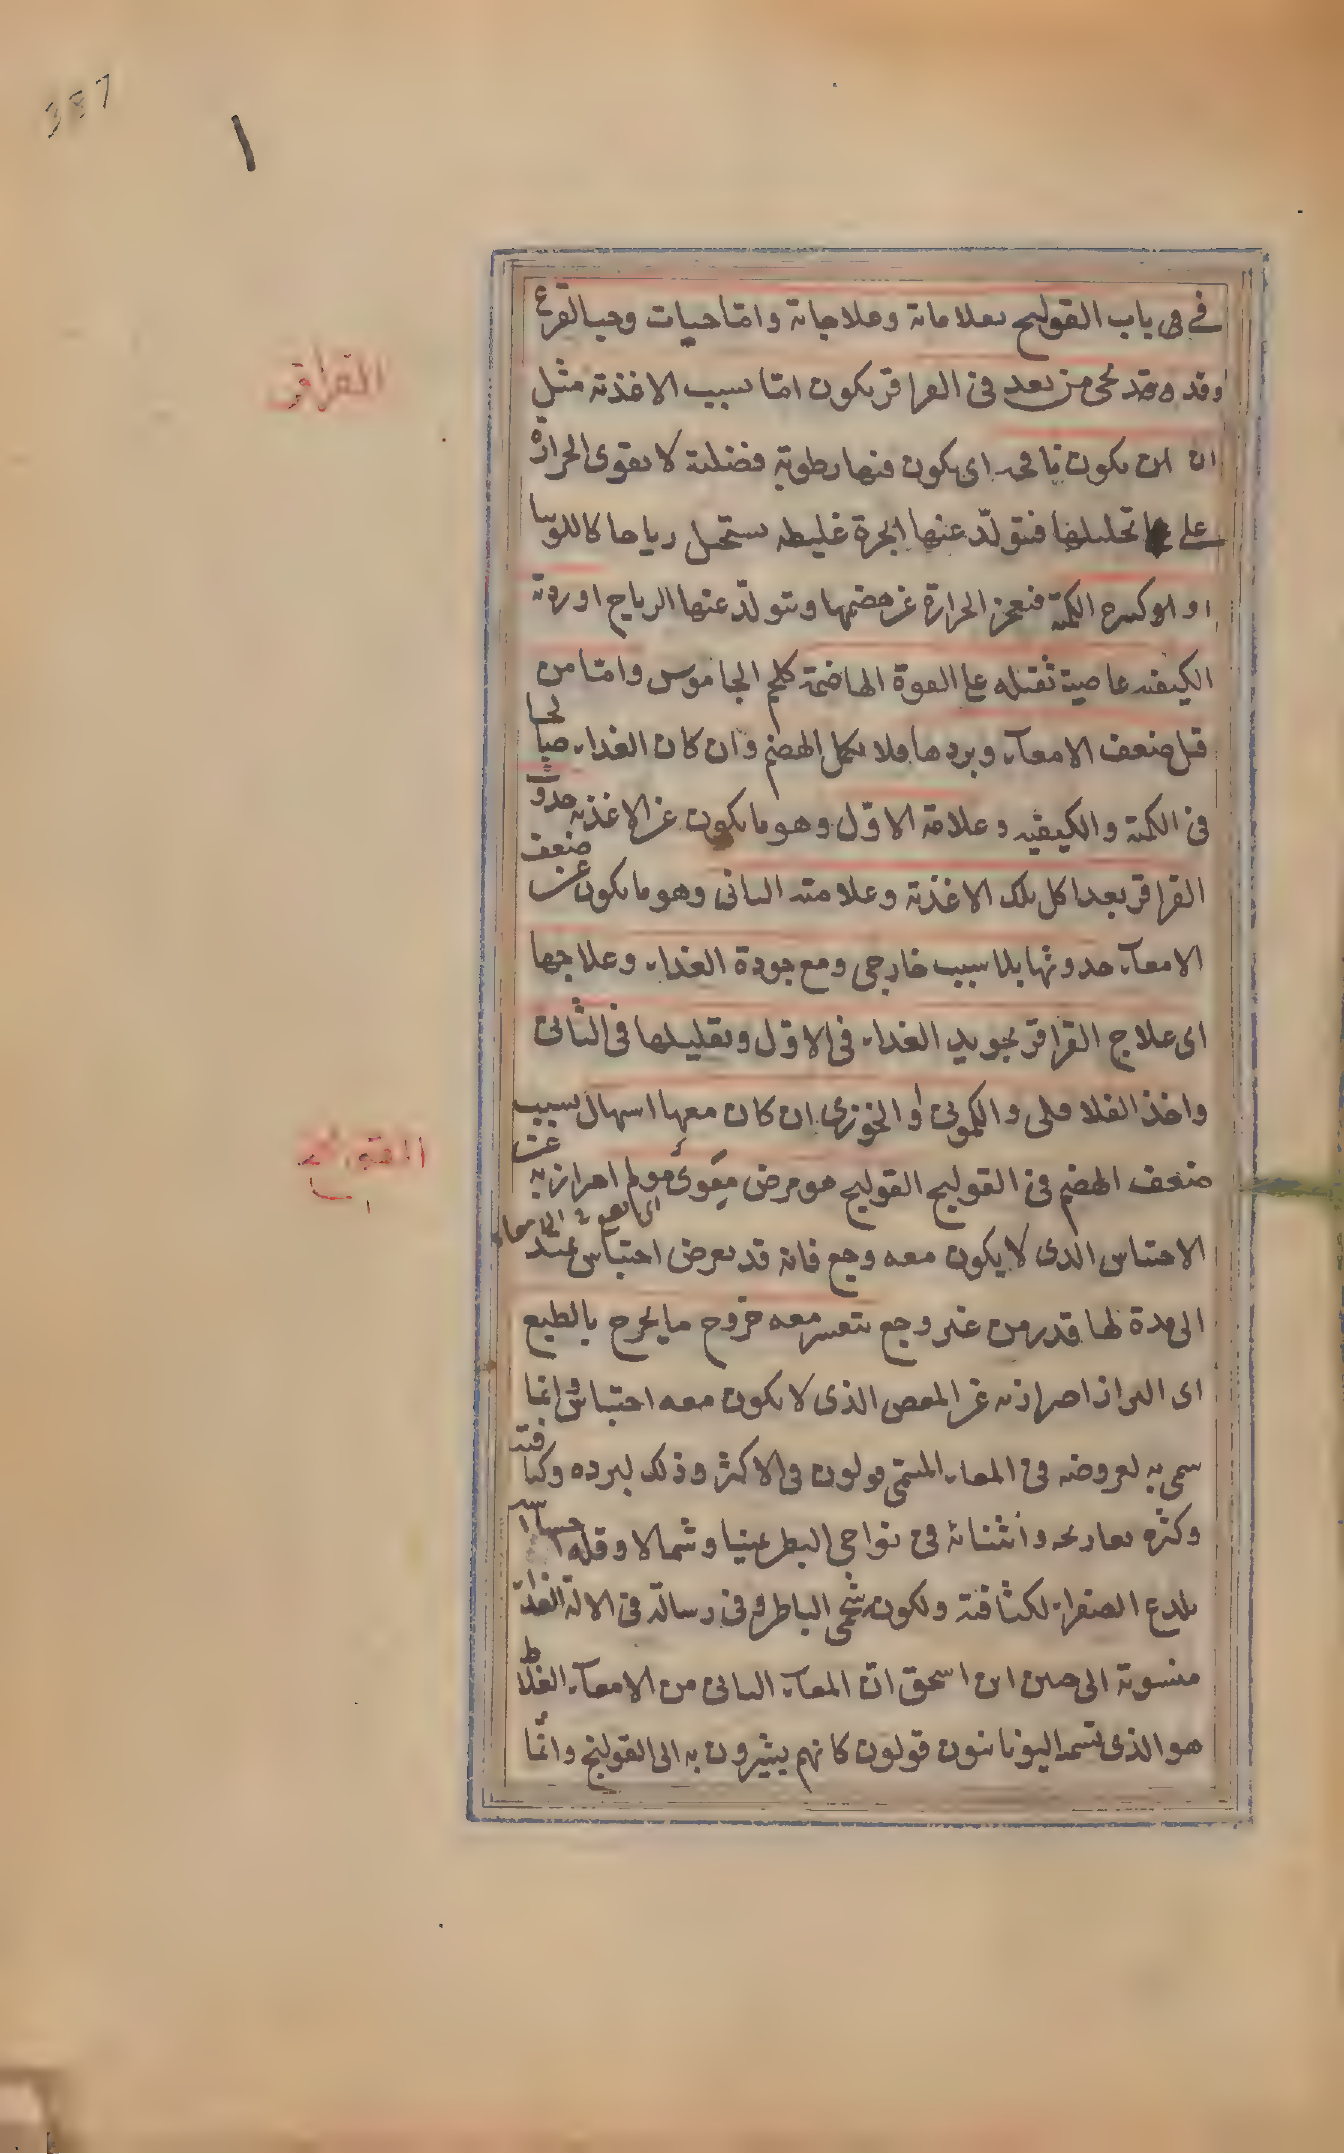 387
١
في باب القولنج بعلاماته وعلاجاته واما حيات وحب القرع
القراقر
وقد يجئ من بعد في القراقر يكون اما بسبب الاغذية مثل
ان يكون نافخه اى يكون فيها رطوبة فضلية لا يقوى الحرارة
على تحليلها فيتولد عنها ابخرة غليظه يستحيل رياحا كاللوبيا
او كثيره الكمية فيعجز الحرارة عن هضمها ويتولد عنها الرياح او ردية
الكيفيه عاصية ثقيله على القوة الهاضمة كلحم الجاموس واما من
قبل ضعف الامعآء وبردها فلا يكمل الهضم وان كان الغداء صالحا
في الكمية والكيفيه وعلامة الاول وهو ما يكون عن الاغذيه حدوث
القراقر بعد اكل تلك الاغذية وعلامته الثانى وهو ما يكون عن ضعف
الامعآء حدوثها بلا سبب خارجى ومع جودة الغداء وعلاجها
اى علاج القراقر بجويد الغداء في الاول وتقليلها في الثانى
واخذ الفلافلى والكمونى او الخوزى ان كان معها اسهال بسبب
القولنج
ضعف الهضم في القولنج القولنج هو مرض معوى مولم احراز به عن
الاحتباس الذى لا يكون معه وجع فانه قد يعرض احتباس عند
الى مدة لها قدر من غير وجع يتعسر معه خروج ما يخرج بالطبع
اى البراز احراز به عن المغص الذى لا يكون معه احتباس وانما
سمى به لعروضه في المعاء المسمى قولون في الاكثر وذلك لبرده وكثافته
وكثره تعاريجه وانثنائه في نواحى البطن يمينا وشمالا وقله احساسه
بلدع الصفراء لكثافته ولكونه شحمى الباطن وفي رسالة في الالة الغداء
منسوبة الى حنين ابن اسحق ان المعآء الثانى من الامعآء الغلاظ
هو الذى تسمه اليونانيون قولون كانهم يشيرون به الى القولنج وانما